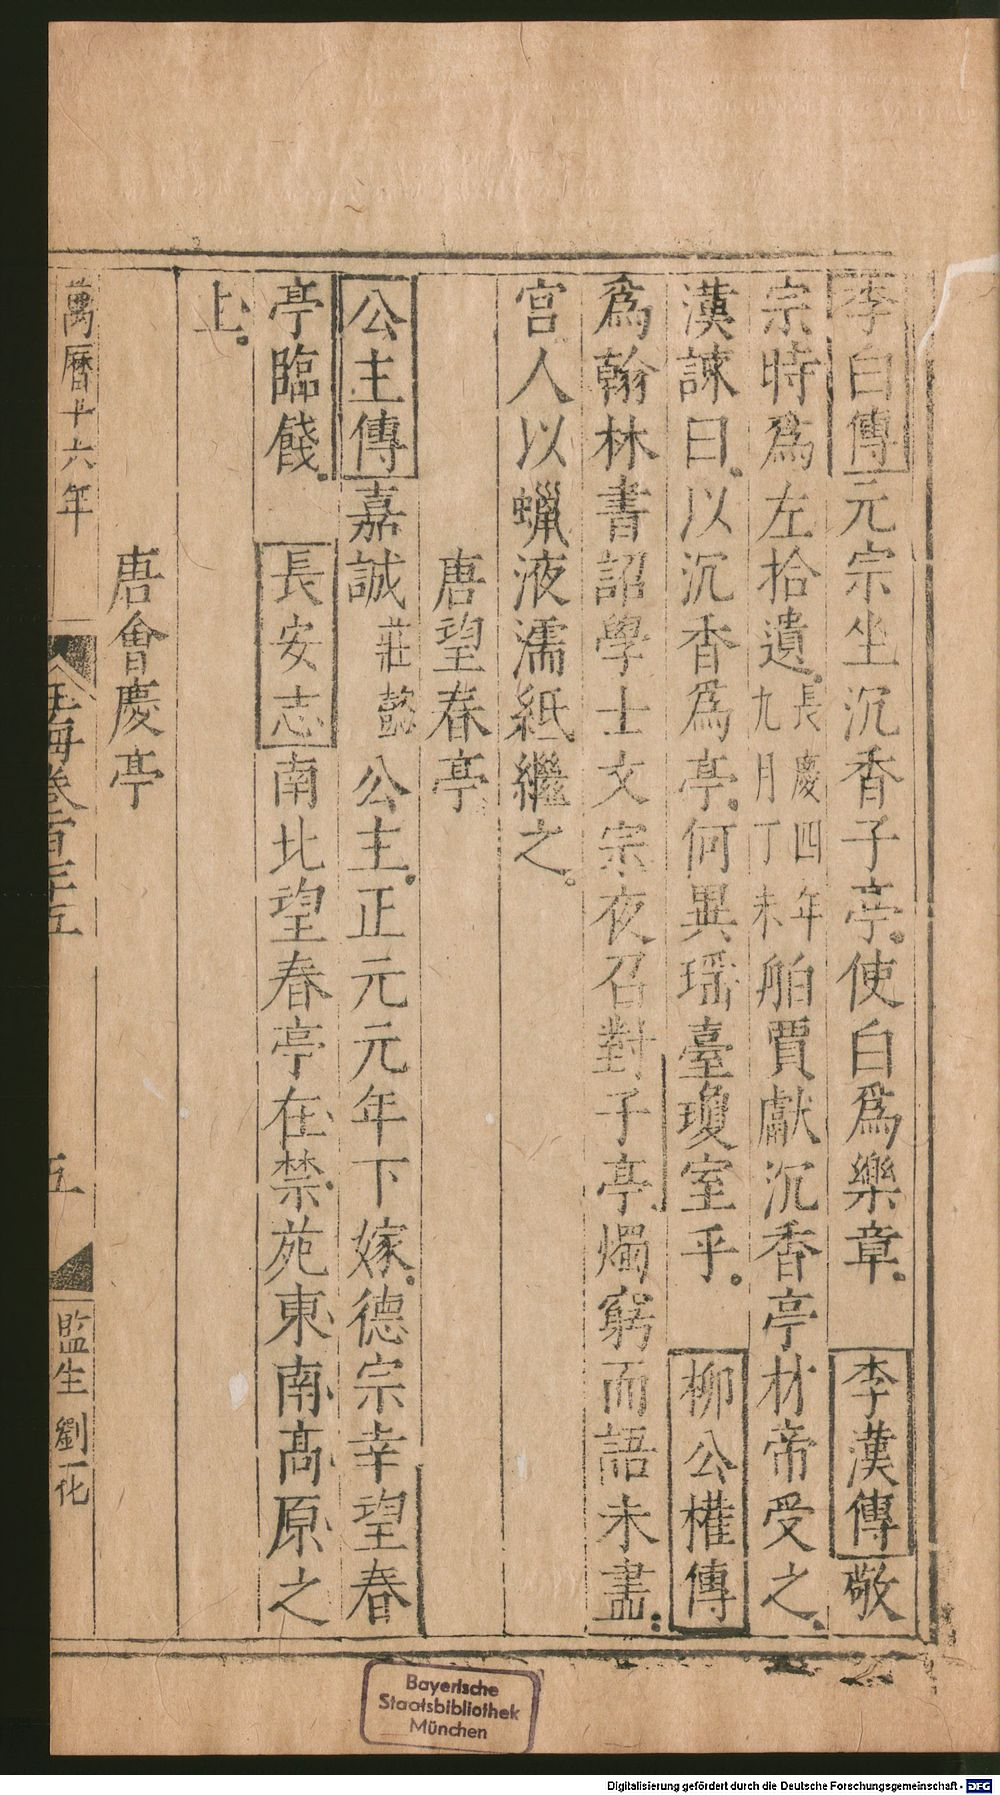 李白傳元宗坐沉香子亭使白爲樂章李漢傳敬
宗時爲左拾遺長慶四年九月丁未舶賈獻沉香亭材帝受之
漢諫曰以沉香爲亭何異瑶臺瓊室乎柳公權傳
爲翰林書詔學士文宗夜召對子亭燭窮而語未盡
宮人以蠟液濡紙繼之
唐望春亭
公主傳嘉誠莊懿公主正元元年下嫁德宗幸望春
亭臨餞長安志南北望春亭在禁苑東南高原之
上
唐會慶亭
萬曆十六年
玉海卷百
五
監生劉一化
Bayerische
Staatsbibliothek
München
Digitalisierung gefördert durch die Deutsche Forschungsgemeinschaft - DFG